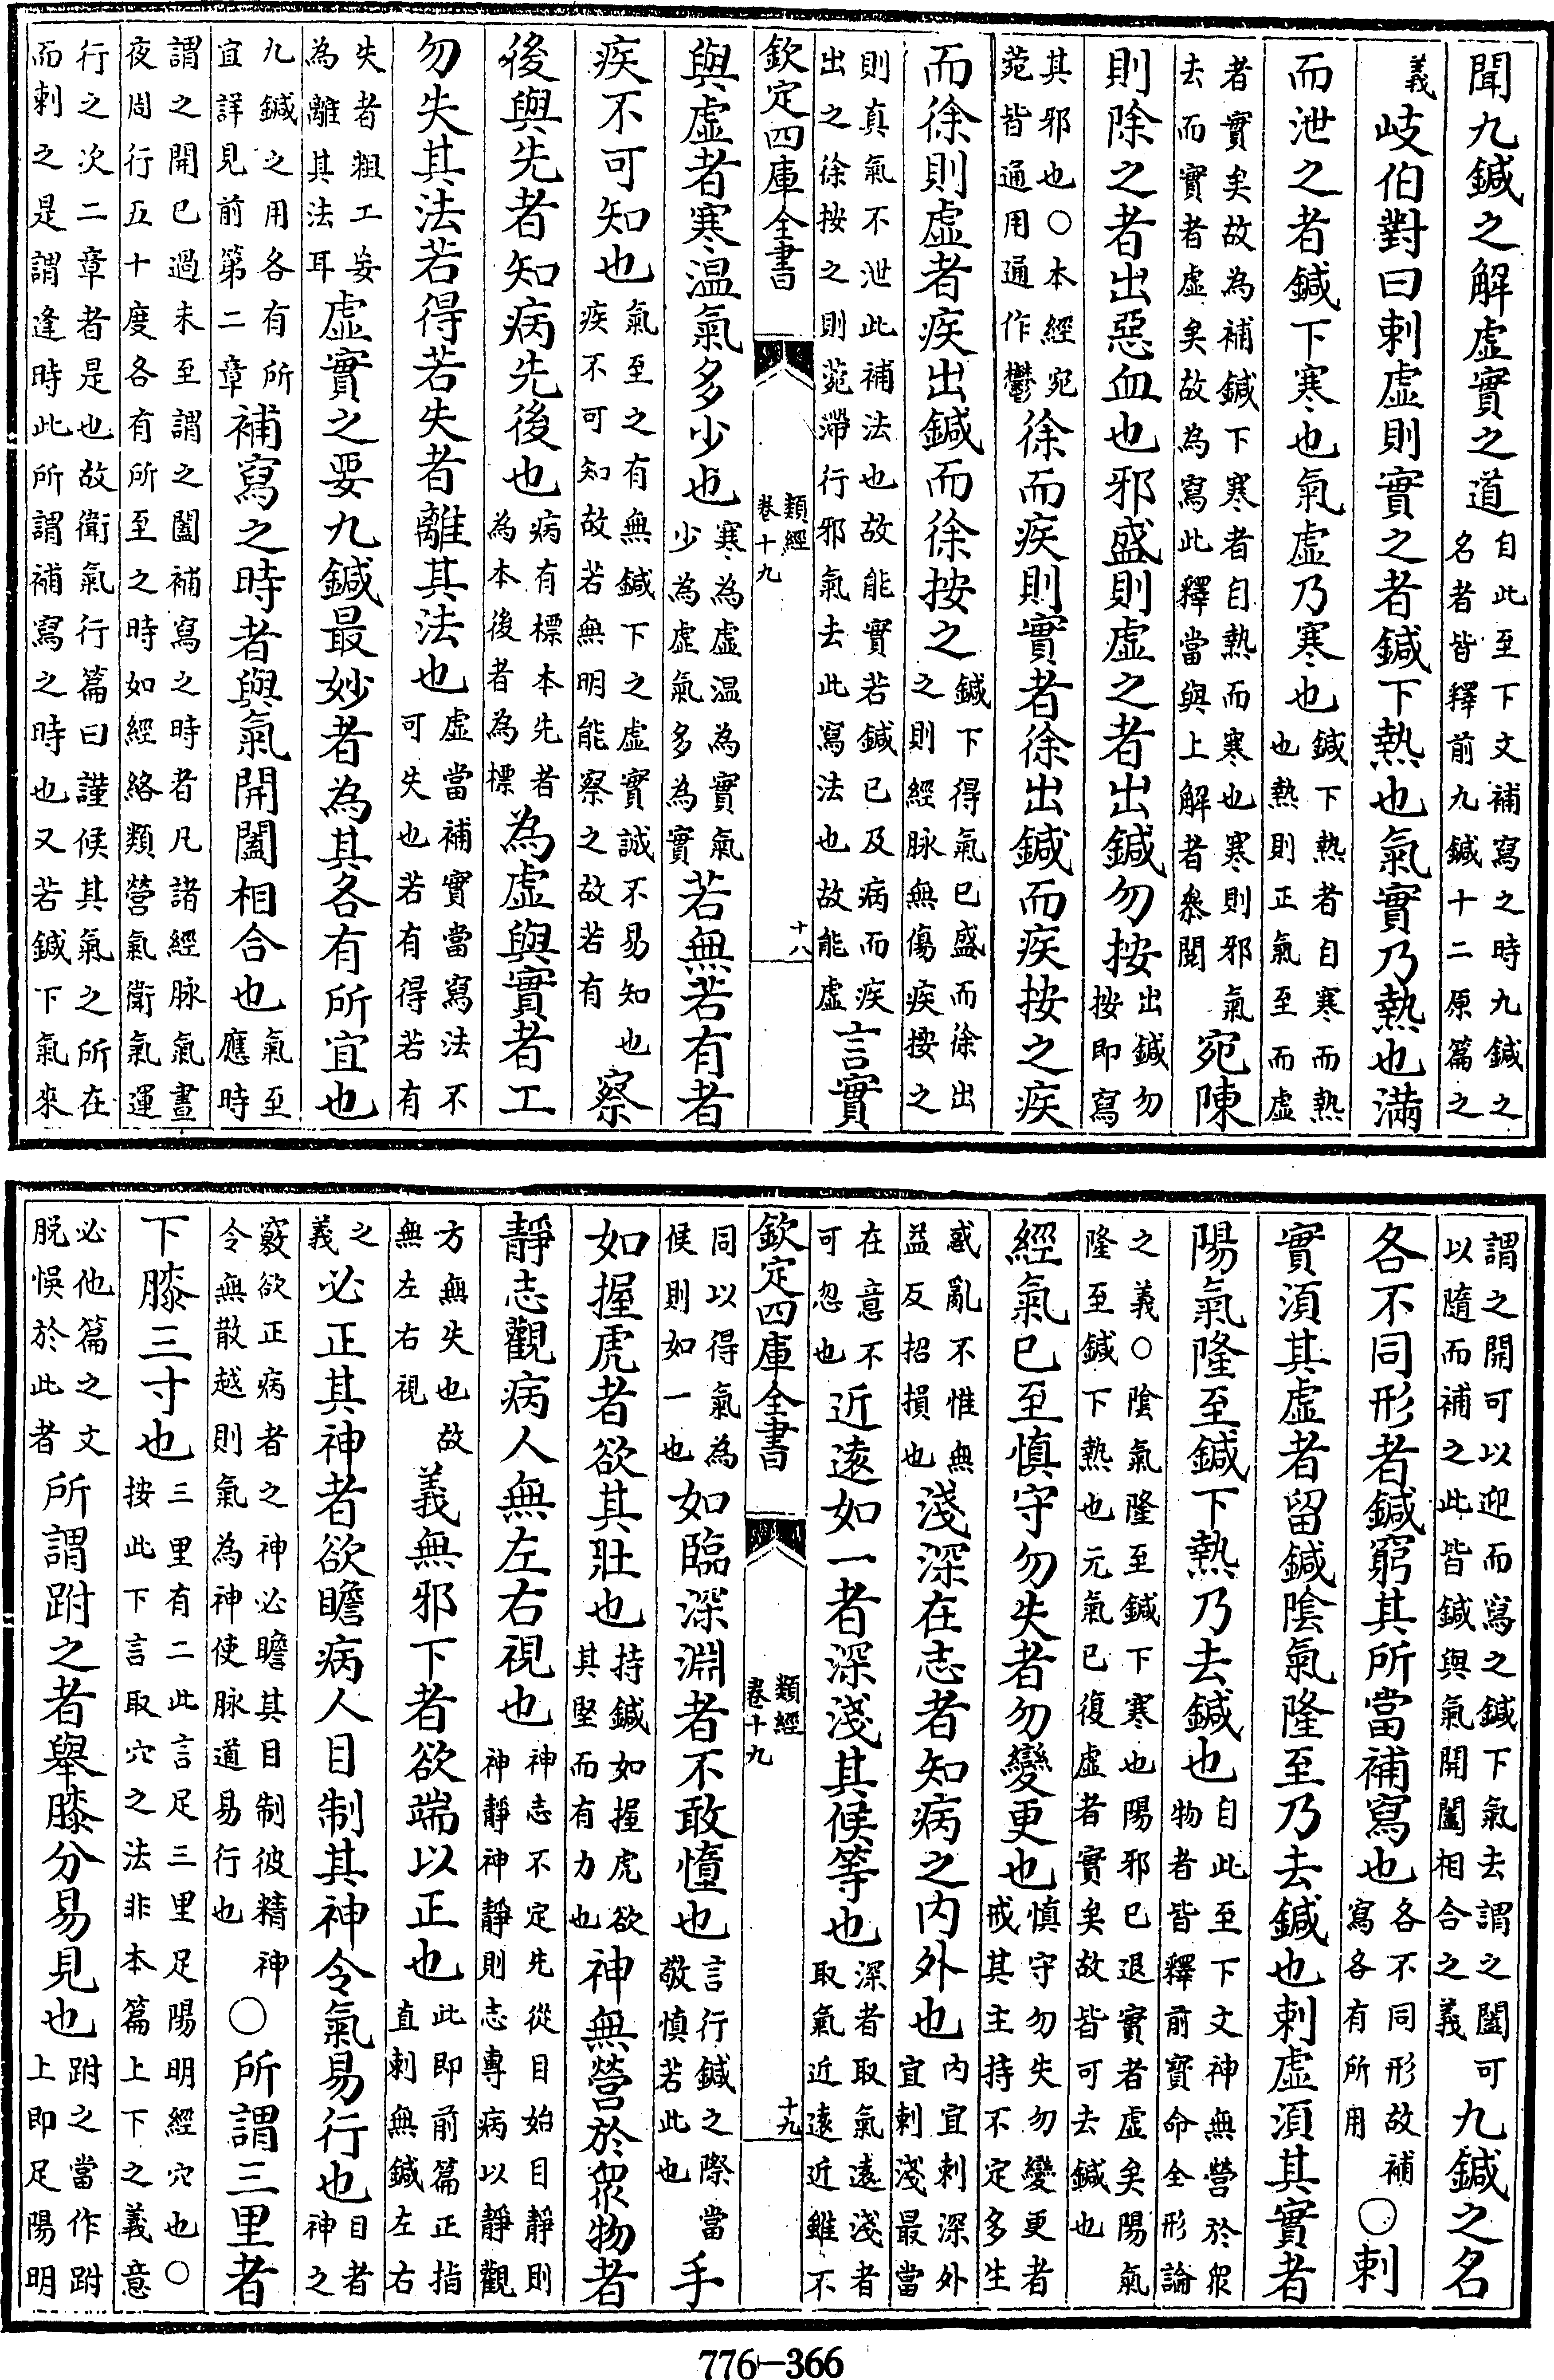 聞九鍼之解虛實之道自此至下文補寫之時九鍼之名者皆釋前九鍼十二原篇之
義岐伯對曰刺虛則實之者鍼下熱也氣實乃熱也滿
而泄之者鍼下寒也氣虛乃寒也鍼下熱者自寒而熱也熱則正氣至而虛
者實矣故為補鍼下寒者自熱而寒也寒則邪氣去而實者虛矣故為寫此釋當與上解者叅閱宛陳
則除之者出惡血也邪盛則虛之者出鍼勿按出鍼勿按即寫
其邪也○本經宛菀皆通用通作鬱徐而疾則實者徐出鍼而疾按之疾
而徐則虛者疾出鍼而徐按之鍼下得氣已盛而徐出之則經脉無傷疾按之
則真氣不泄此補法也故能實若鍼已及病而疾出之徐按之則菀滯行邪氣去此寫法也故能虛言實
欽定四庫全書 類經卷十九 十八
與虛者寒温氣多少也寒為虛温為實氣少為虛氣多為實若無若有者
疾不可知也氣至之有無鍼下之虛實誠不易知也疾不可知故若無明能察之故若有察
後與先者知病先後也病有標本先者為本後者為標為虛與實者工
勿失其法若得若失者離其法也虛當補實當寫法不可失也若有得若有
失者粗工妄為離其法耳虛實之要九鍼最妙者為其各有所宜也
九鍼之用各有所宜詳見前第二章補寫之時者與氣開闔相合也氣至應時
謂之開已過未至謂之闔補寫之時者凡諸經脉氣晝夜周行五十度各有所至之時如經絡類營氣衛氣運
行之次二章者是也故衛氣行篇曰謹候其氣之所在而刺之是謂逢時此所謂補寫之時也又若鍼下氣來
謂之開可以迎而寫之鍼下氣去謂之闔可以隨而補之此皆鍼與氣開闔相合之義九鍼之名
各不同形者鍼窮其所當補寫也各不同形故補寫各有所用○刺
實湏其虛者留鍼陰氣隆至乃去鍼也刺虛湏其實者
陽氣隆至鍼下熱乃去鍼也自此至下文神無營於衆物者皆釋前寳命全形論
之義○陰氣隆至鍼下寒也陽邪已退實者虛矣陽氣隆至鍼下熱也元氣已復虛者實矣故皆可去鍼也
經氣已至慎守勿失者勿變更也慎守勿失勿變更者戒其主持不定多生
惑亂不惟無益反招損也淺深在志者知病之内外也内宜刺深外宜刺淺最當
在意不可忽也近遠如一者深淺其候等也深者取氣遠淺者取氣近遠近雖不
欽定四庫全書 類經卷十九 十九
同以得氣為候則如一也如臨深淵者不敢憧也言行鍼之際當敬慎若此也手
如握虎者欲其壯也持鍼如握虎欲其堅而有力也神無營於衆物者
靜志觀病人無左右視也神志不定先從目始目靜則神靜神靜則志專病以靜觀
方無失也故無左右視義無邪下者欲端以正也此即前篇正指直刺無鍼左右
之義必正其神者欲瞻病人目制其神令氣易行也目者神之
竅欲正病者之神必瞻其目制彼精神令無散越則氣為神使脉道易行也○所謂三里者
下膝三寸也三里有二此言足三里足陽明經穴也○按此下言取穴之法非本篇上下之義意
必他篇之文脱悞於此者所謂跗之者舉膝分易見也跗之當作跗上即足陽明
776-366